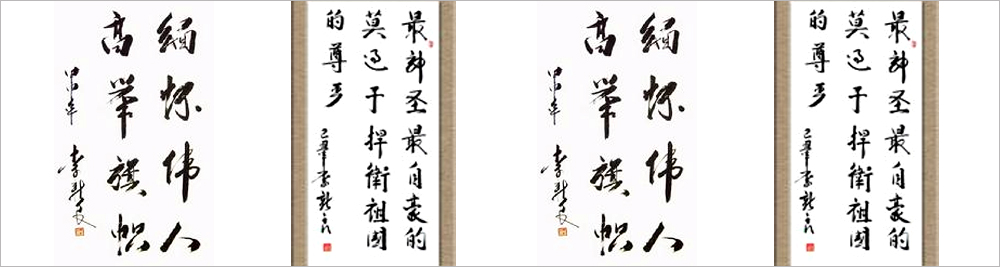 缅怀伟人
高举旗帜
最神圣最自豪的
莫过于捍卫祖国
的尊严
缅怀伟人
高举旗帜
最神圣最自豪的
莫过于捍衛祖國
的尊严